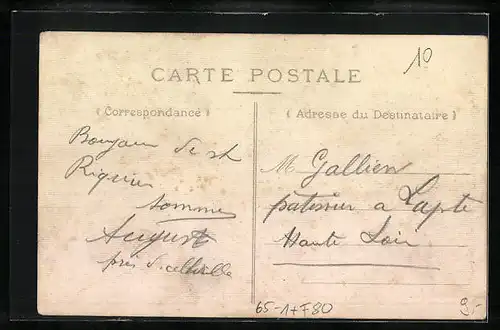 10
CARTE POSTALE
(Correspondance)
Bonjour de st
Riquier
somme
August
près d
(Adresse du Destinataire)
M Gallien
patissier a Lapte
Haute Loir
65-1+F80
9.-